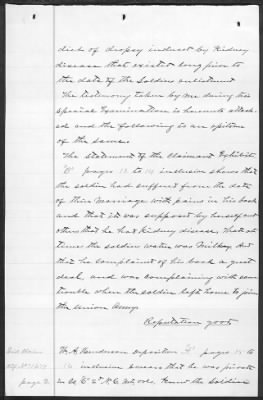 died of dropsy induced by Kidney
disease that existed long prior to
the date of the Soldier enlistment
The testimony taken by me during this
special Examination is herewith attach-
ed and the following is an epitome
of the same.
The statement of the Claimant Exhibit
pages to 14 inclusive shows that
the soldier had suffered from the date
of their Marriage with pains in his back
and that it was supposed by herself and
others that he had Kidney disease, that at
time the soldier water was Milkey, and
that he complained of his back a great
deal, and was complaining with some
trouble when the soldier left home to join
the Union Army.
Reputation good
W. A. Henderson deposition pages 15 to
16 inclusive swears that he was private
in Co. 2" N.C. Mtd. Knew the Soldier
page 2